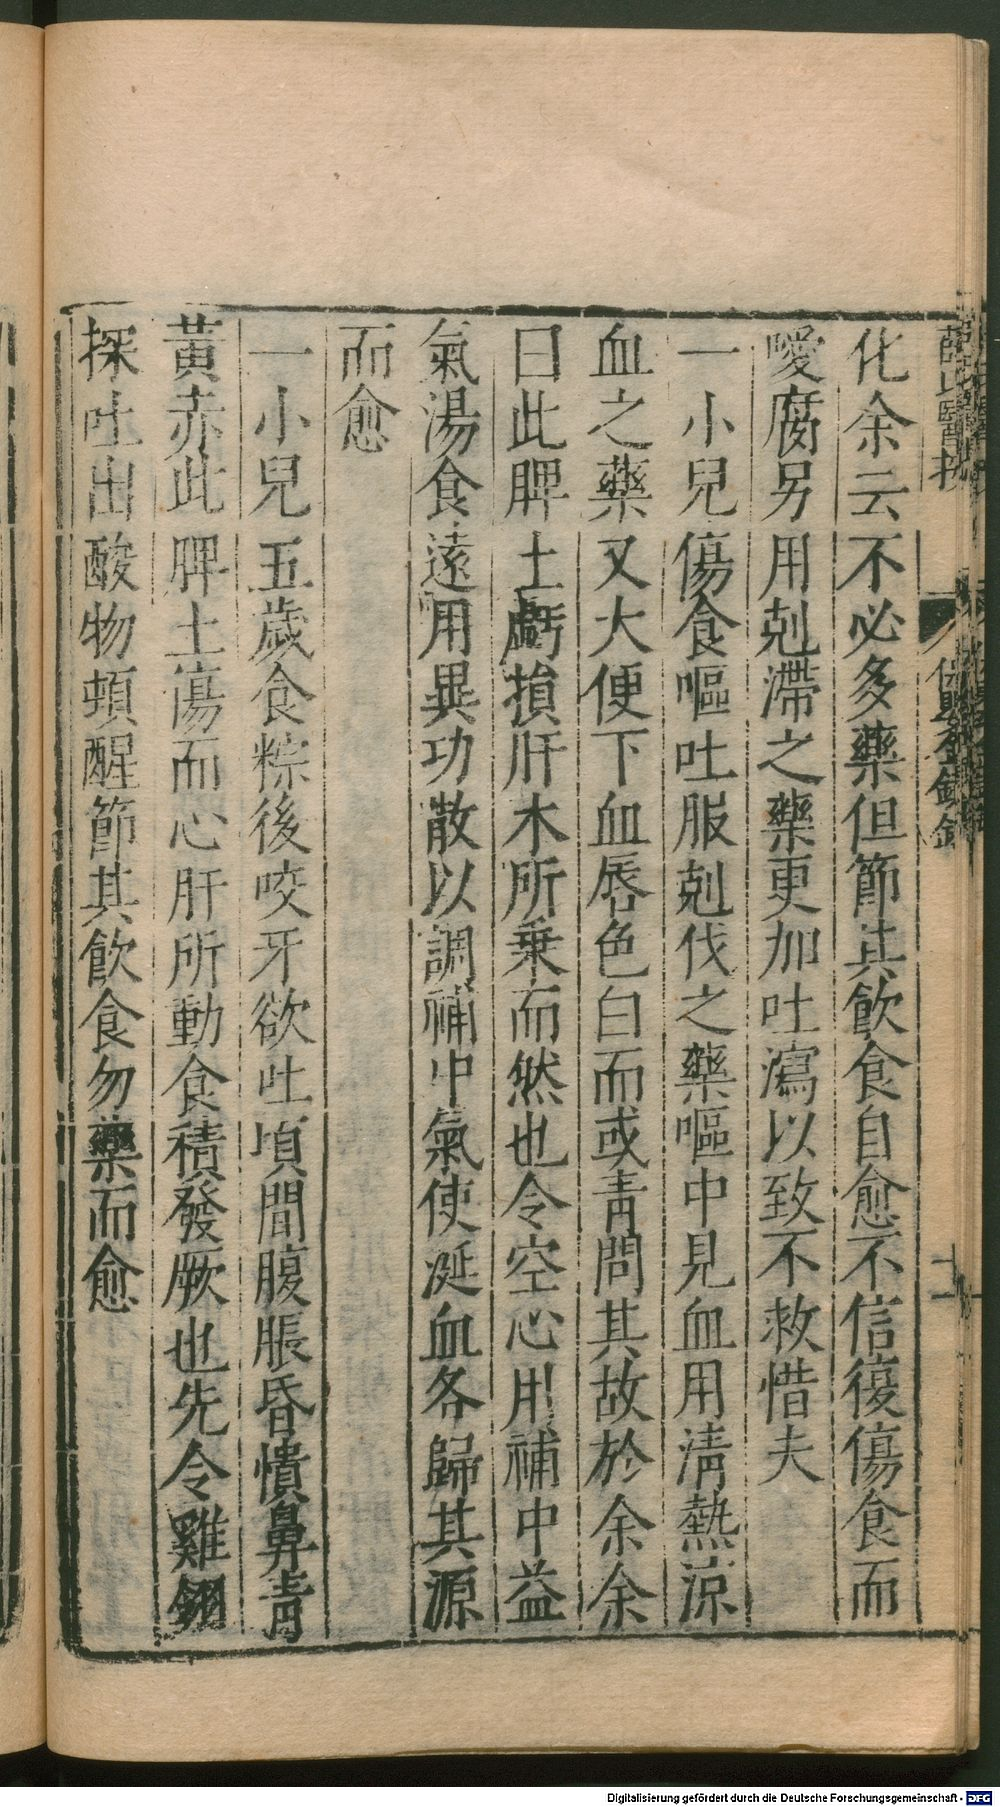 化余云不必多藥但節其飲食自愈不信復傷食而
噯腐另用剋滯之藥更加吐瀉以致不救惜夫
一小兒傷食嘔吐服剋伐之藥嘔中見血用清熱凉
血之藥又大便下血唇色白而或青問其故於余余
曰此脾土虧損肝木所乗而然也令空心用補中益
氣湯食遠用異功散以調補中氣使涎血各歸其源
而愈
一小兒五歲食粽後咬牙欲吐頃間腹脹昏憒鼻青
黃赤此脾土傷而心肝所動食積發厥也先令雞翎
探吐出酸物頓醒節其飲食勿藥而愈
Digitalisierung gefördert durch die Deutsche Forschungsgemeinschaft - DFG